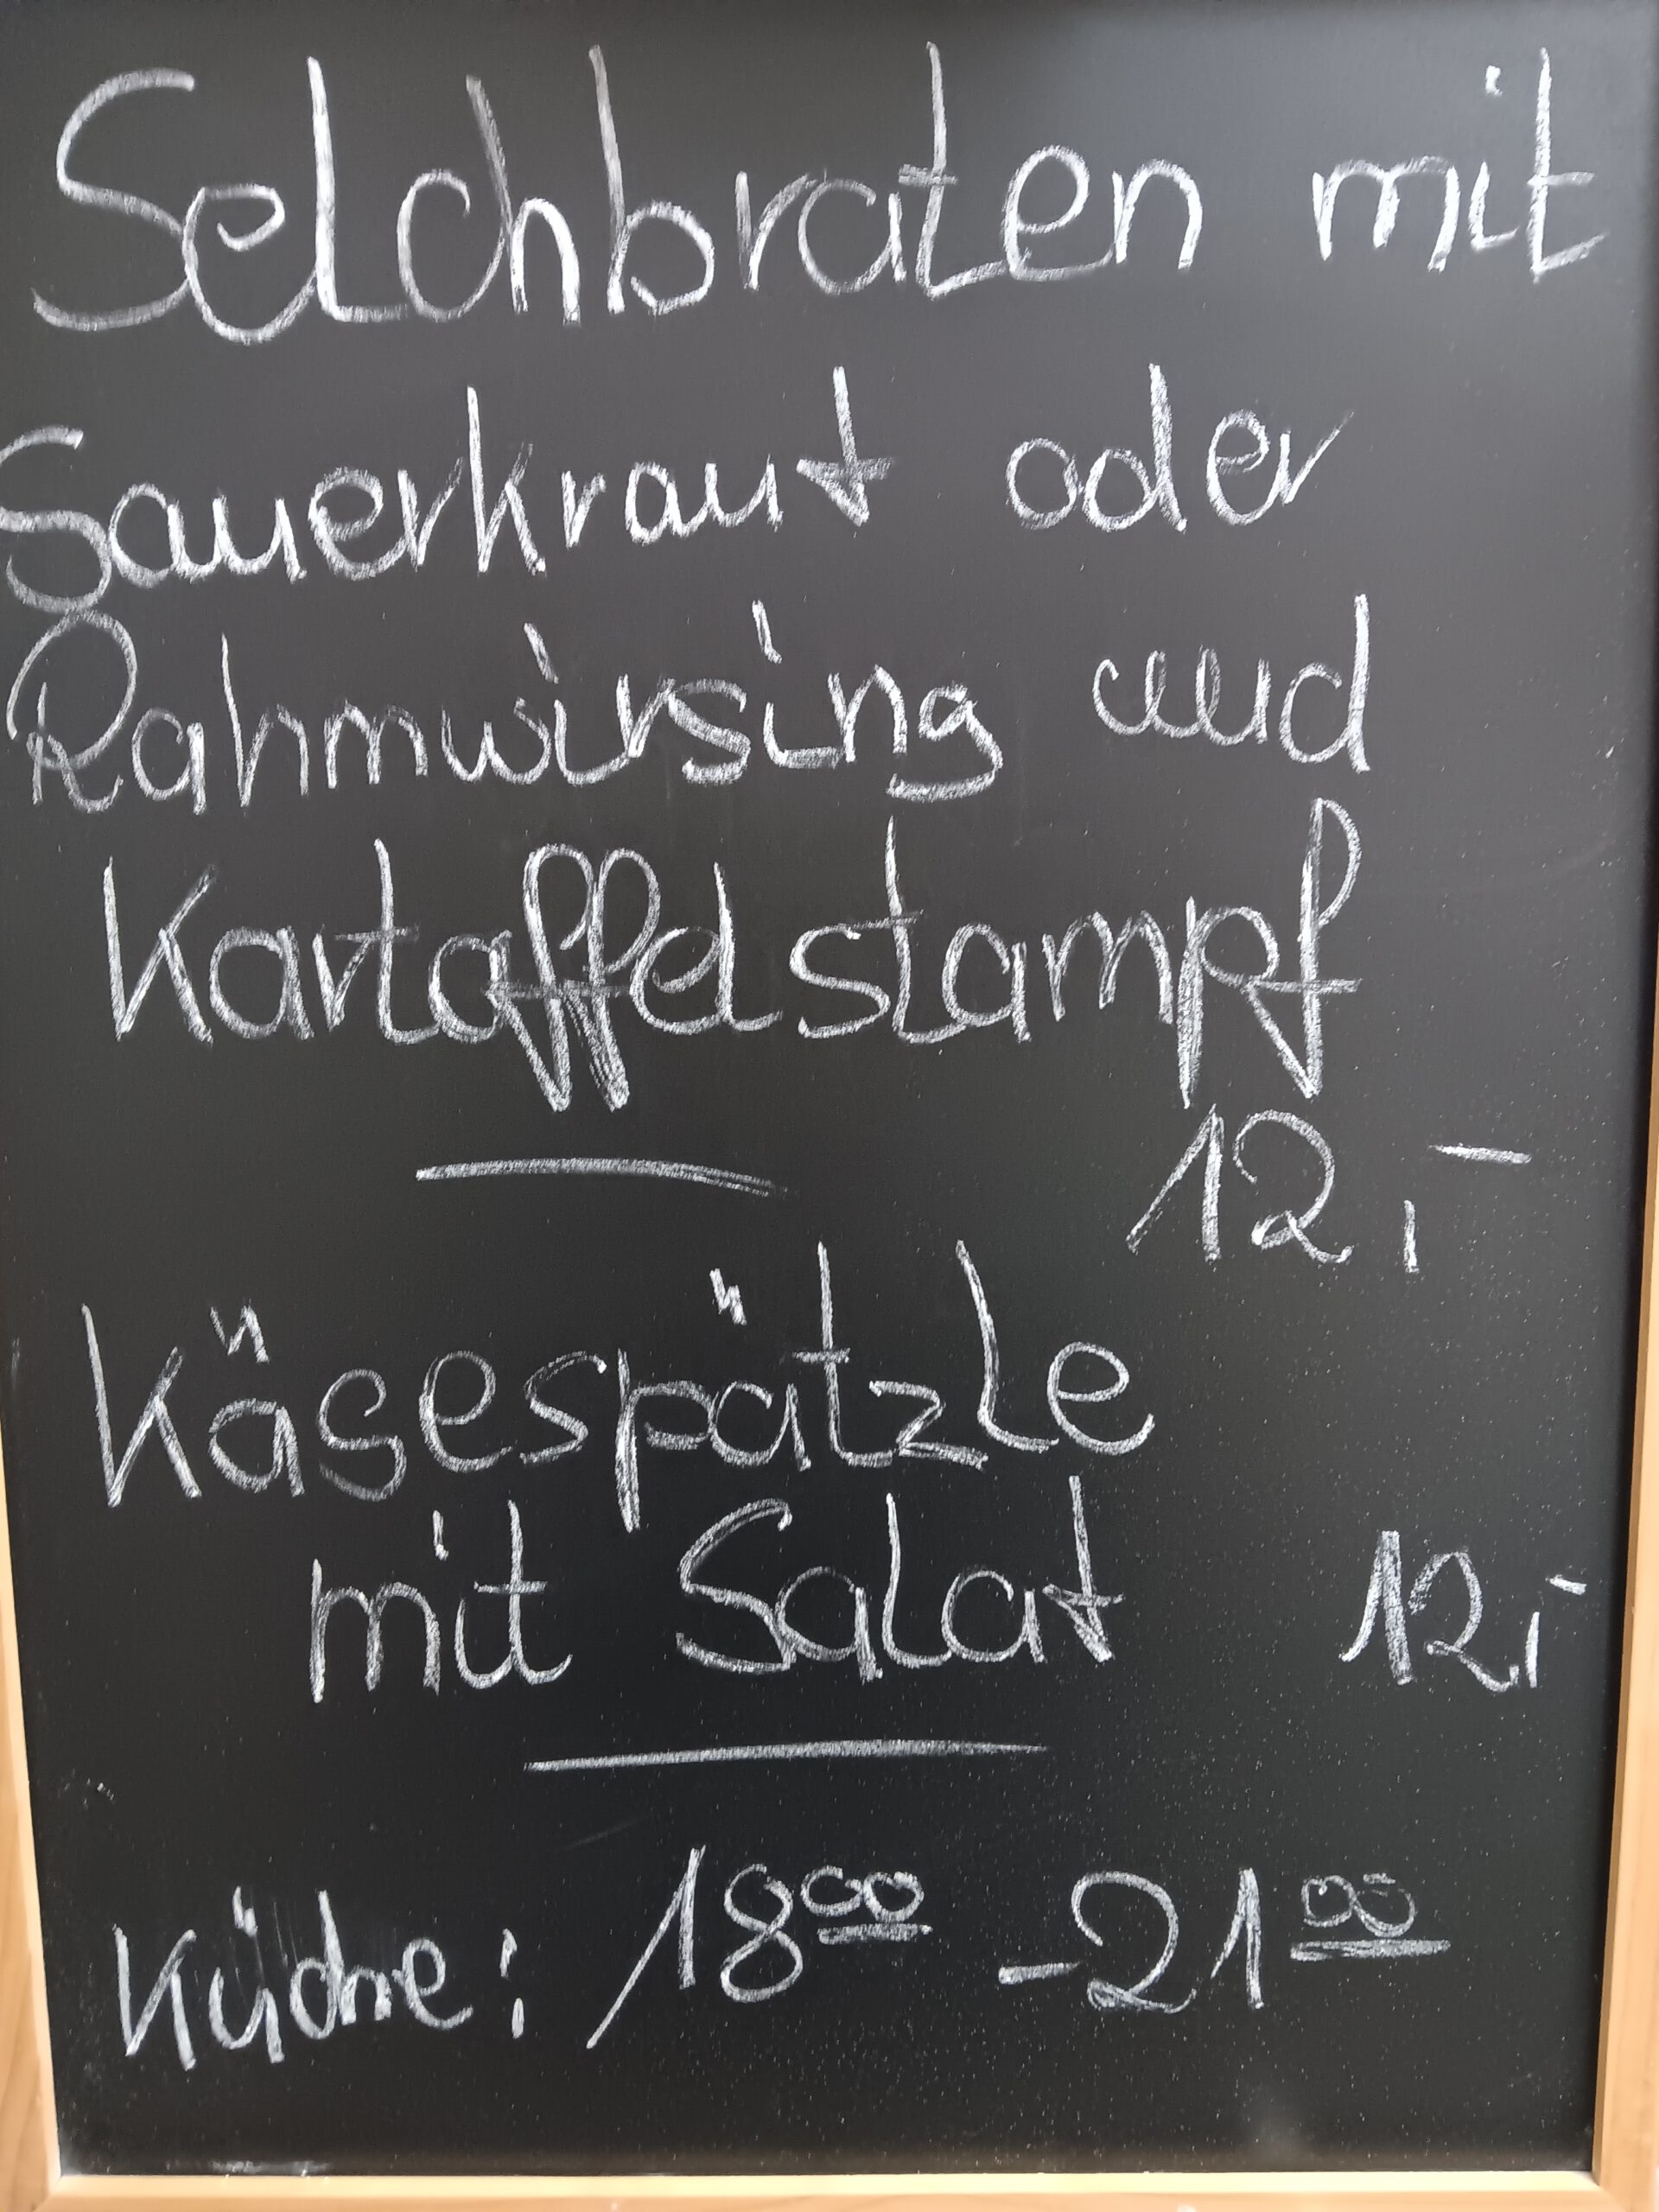 Selchbraten mit
Sauerkraut oder
Rahmwirsing und
Kartaffelstampf
12,-
Käsespätzle
mit Salat 12,-
Küche: 18⁰⁰ - 21⁰⁰